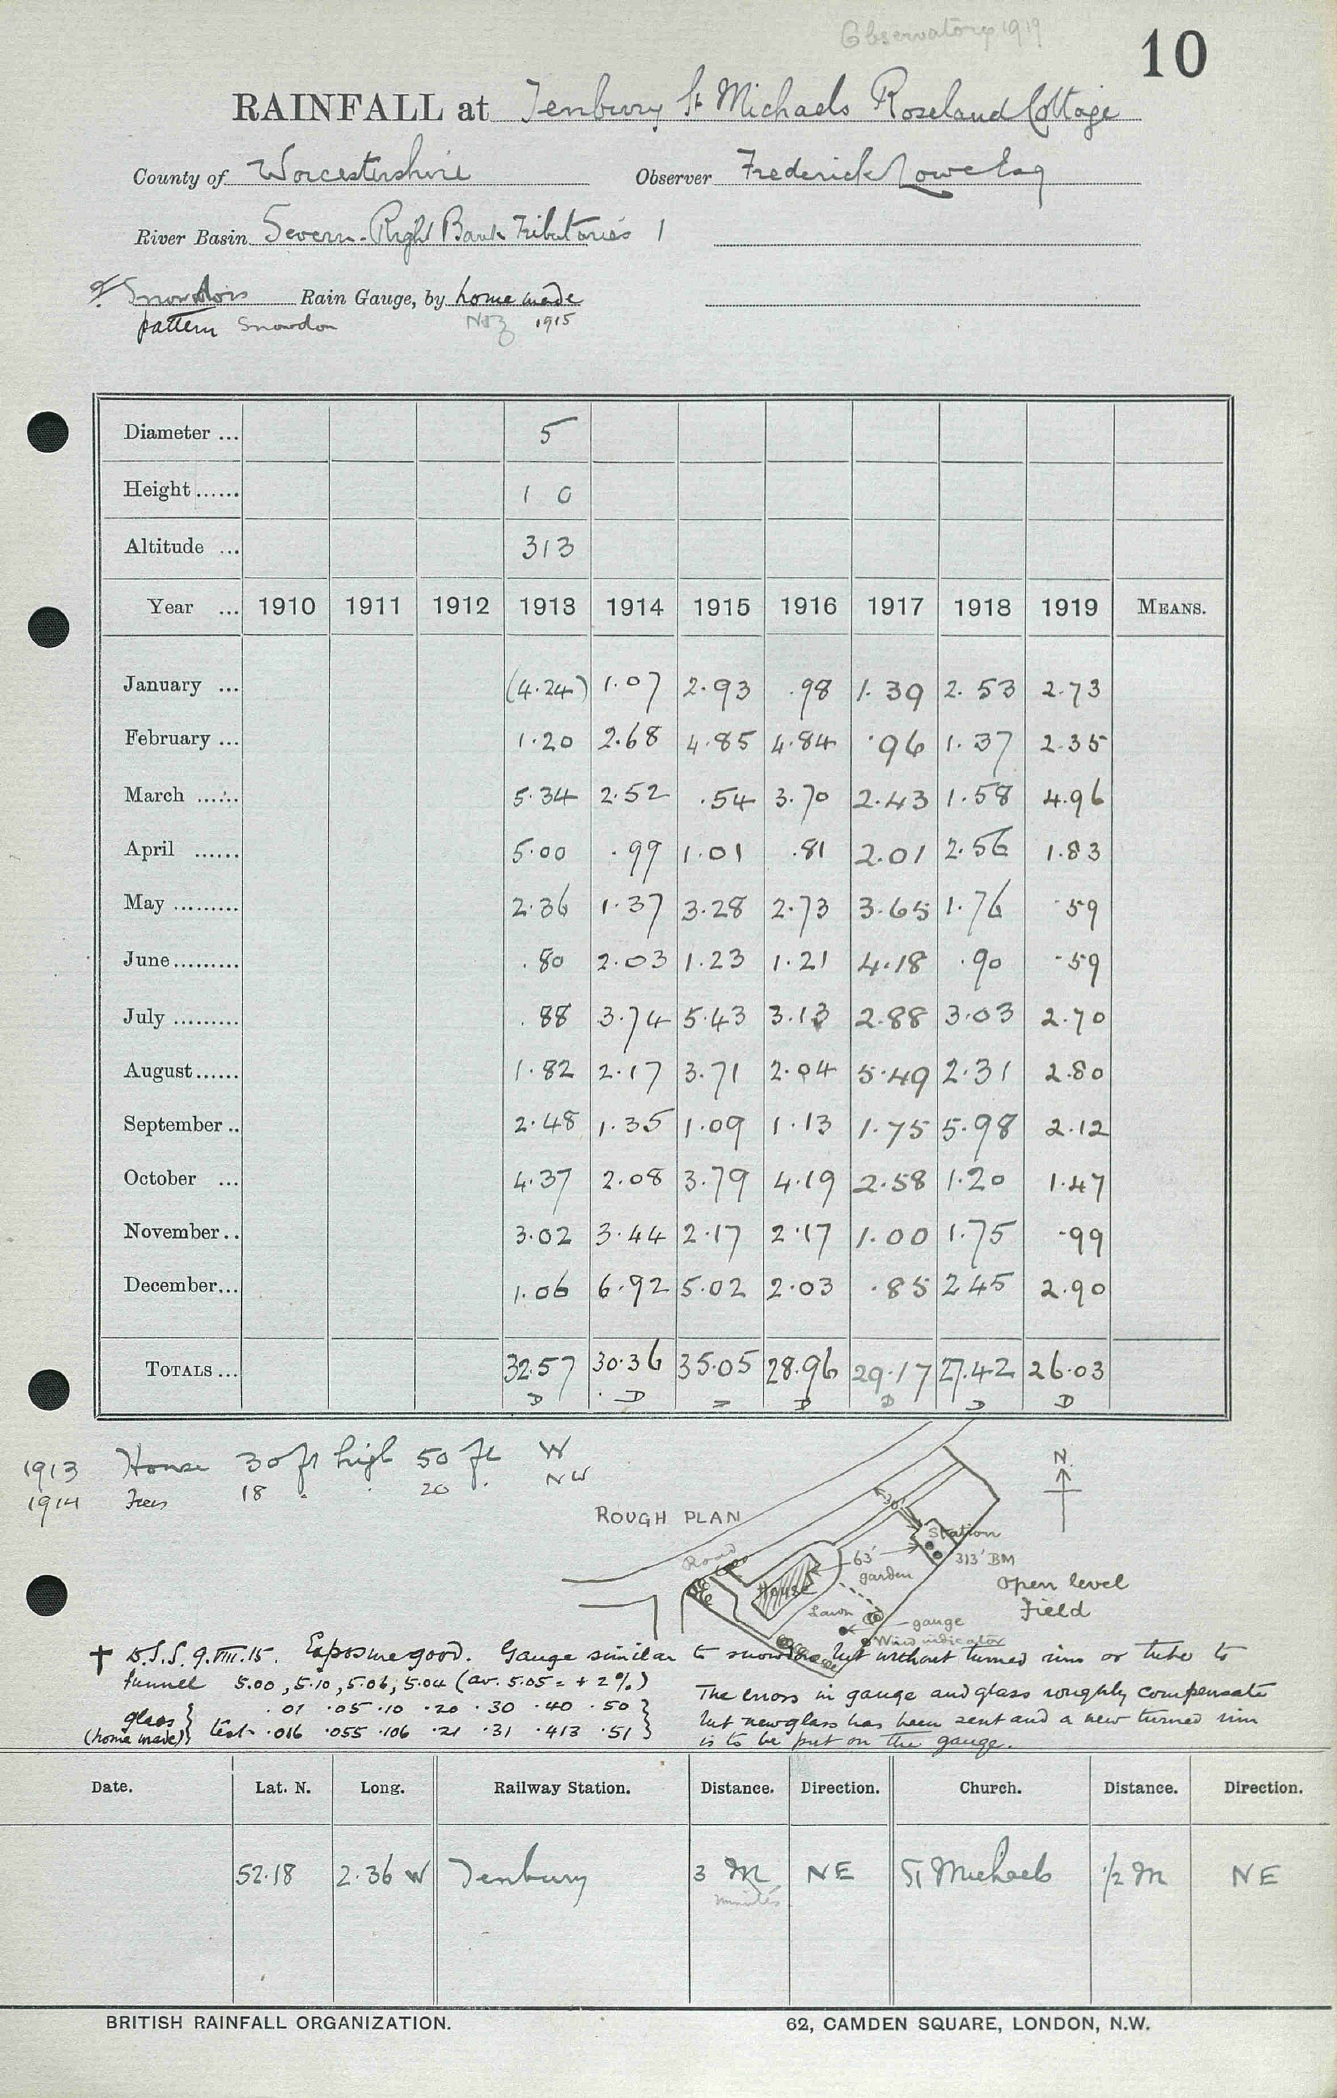 Observatory 1919
10
RAINFALL at Tenbury St Michaels Roseland Cottage
County of Worcestershire Observer Frederick Lowe Esq
River Basin Severn - Right Bank Tributaries 1
Snowdon Rain Gauge, by home made
pattern Snowdon 1915
Diameter ... 5
Height ...... 1 0
Altitude ... 313
Year ... 1910 1911 1912 1913 1914 1915 1916 1917 1918 1919 MEANS.
January ... (4.24) 1.07 2.93 .98 1.39 2.53 2.73
February ... 1.20 2.68 4.85 4.84 .96 1.37 2.35
March ...... 5.34 2.52 .54 3.70 2.43 1.58 4.96
April ...... 5.00 .99 1.01 .81 2.01 2.56 1.83
May ......... 2.36 1.37 3.28 2.73 3.65 1.76 .59
June ......... .80 2.03 1.23 1.21 4.18 .90 .59
July ......... .88 3.74 5.43 3.13 2.88 3.03 2.70
August ...... 1.82 2.17 3.71 2.04 5.49 2.31 2.80
September .. 2.48 1.35 1.09 1.13 1.75 5.98 2.12
October ... 4.37 2.08 3.79 4.19 2.58 1.20 1.47
November .. 3.02 3.44 2.17 2.17 1.00 1.75 .99
December ... 1.06 6.92 5.02 2.03 .85 2.45 2.90
TOTALS ... 32.57 30.36 35.05 28.96 29.17 27.42 26.03
D D = D D D D
1913 House 30 ft high 50 ft W
1914 Trees 18 " " 20 " NW
N.
ROUGH PLAN
Road
House
30'
63'
garden
Station
313' BM
Open level
Field
Lawn
gauge
Wind indicator
† D.S.S. 9.VIII.15. Exposure good. Gauge similar to snowdon but without turned rim or tube to
funnel 5.00, 5.10, 5.06, 5.04 (av. 5.05 = + 2%)
glass } .01 .05 .10 .20 .30 .40 .50 }
(home made) } test .016 .055 .106 .21 .31 .413 .51 }
The errors in gauge and glass roughly compensate
but new glass has been sent and a new turned rim
is to be put on the gauge.
Date. Lat. N. Long. Railway Station. Distance. Direction. Church. Distance. Direction.
52.18 2.36 W Tenbury 3 M NE St Michaels 1/2 M NE
minutes
BRITISH RAINFALL ORGANIZATION. 62, CAMDEN SQUARE, LONDON, N.W.